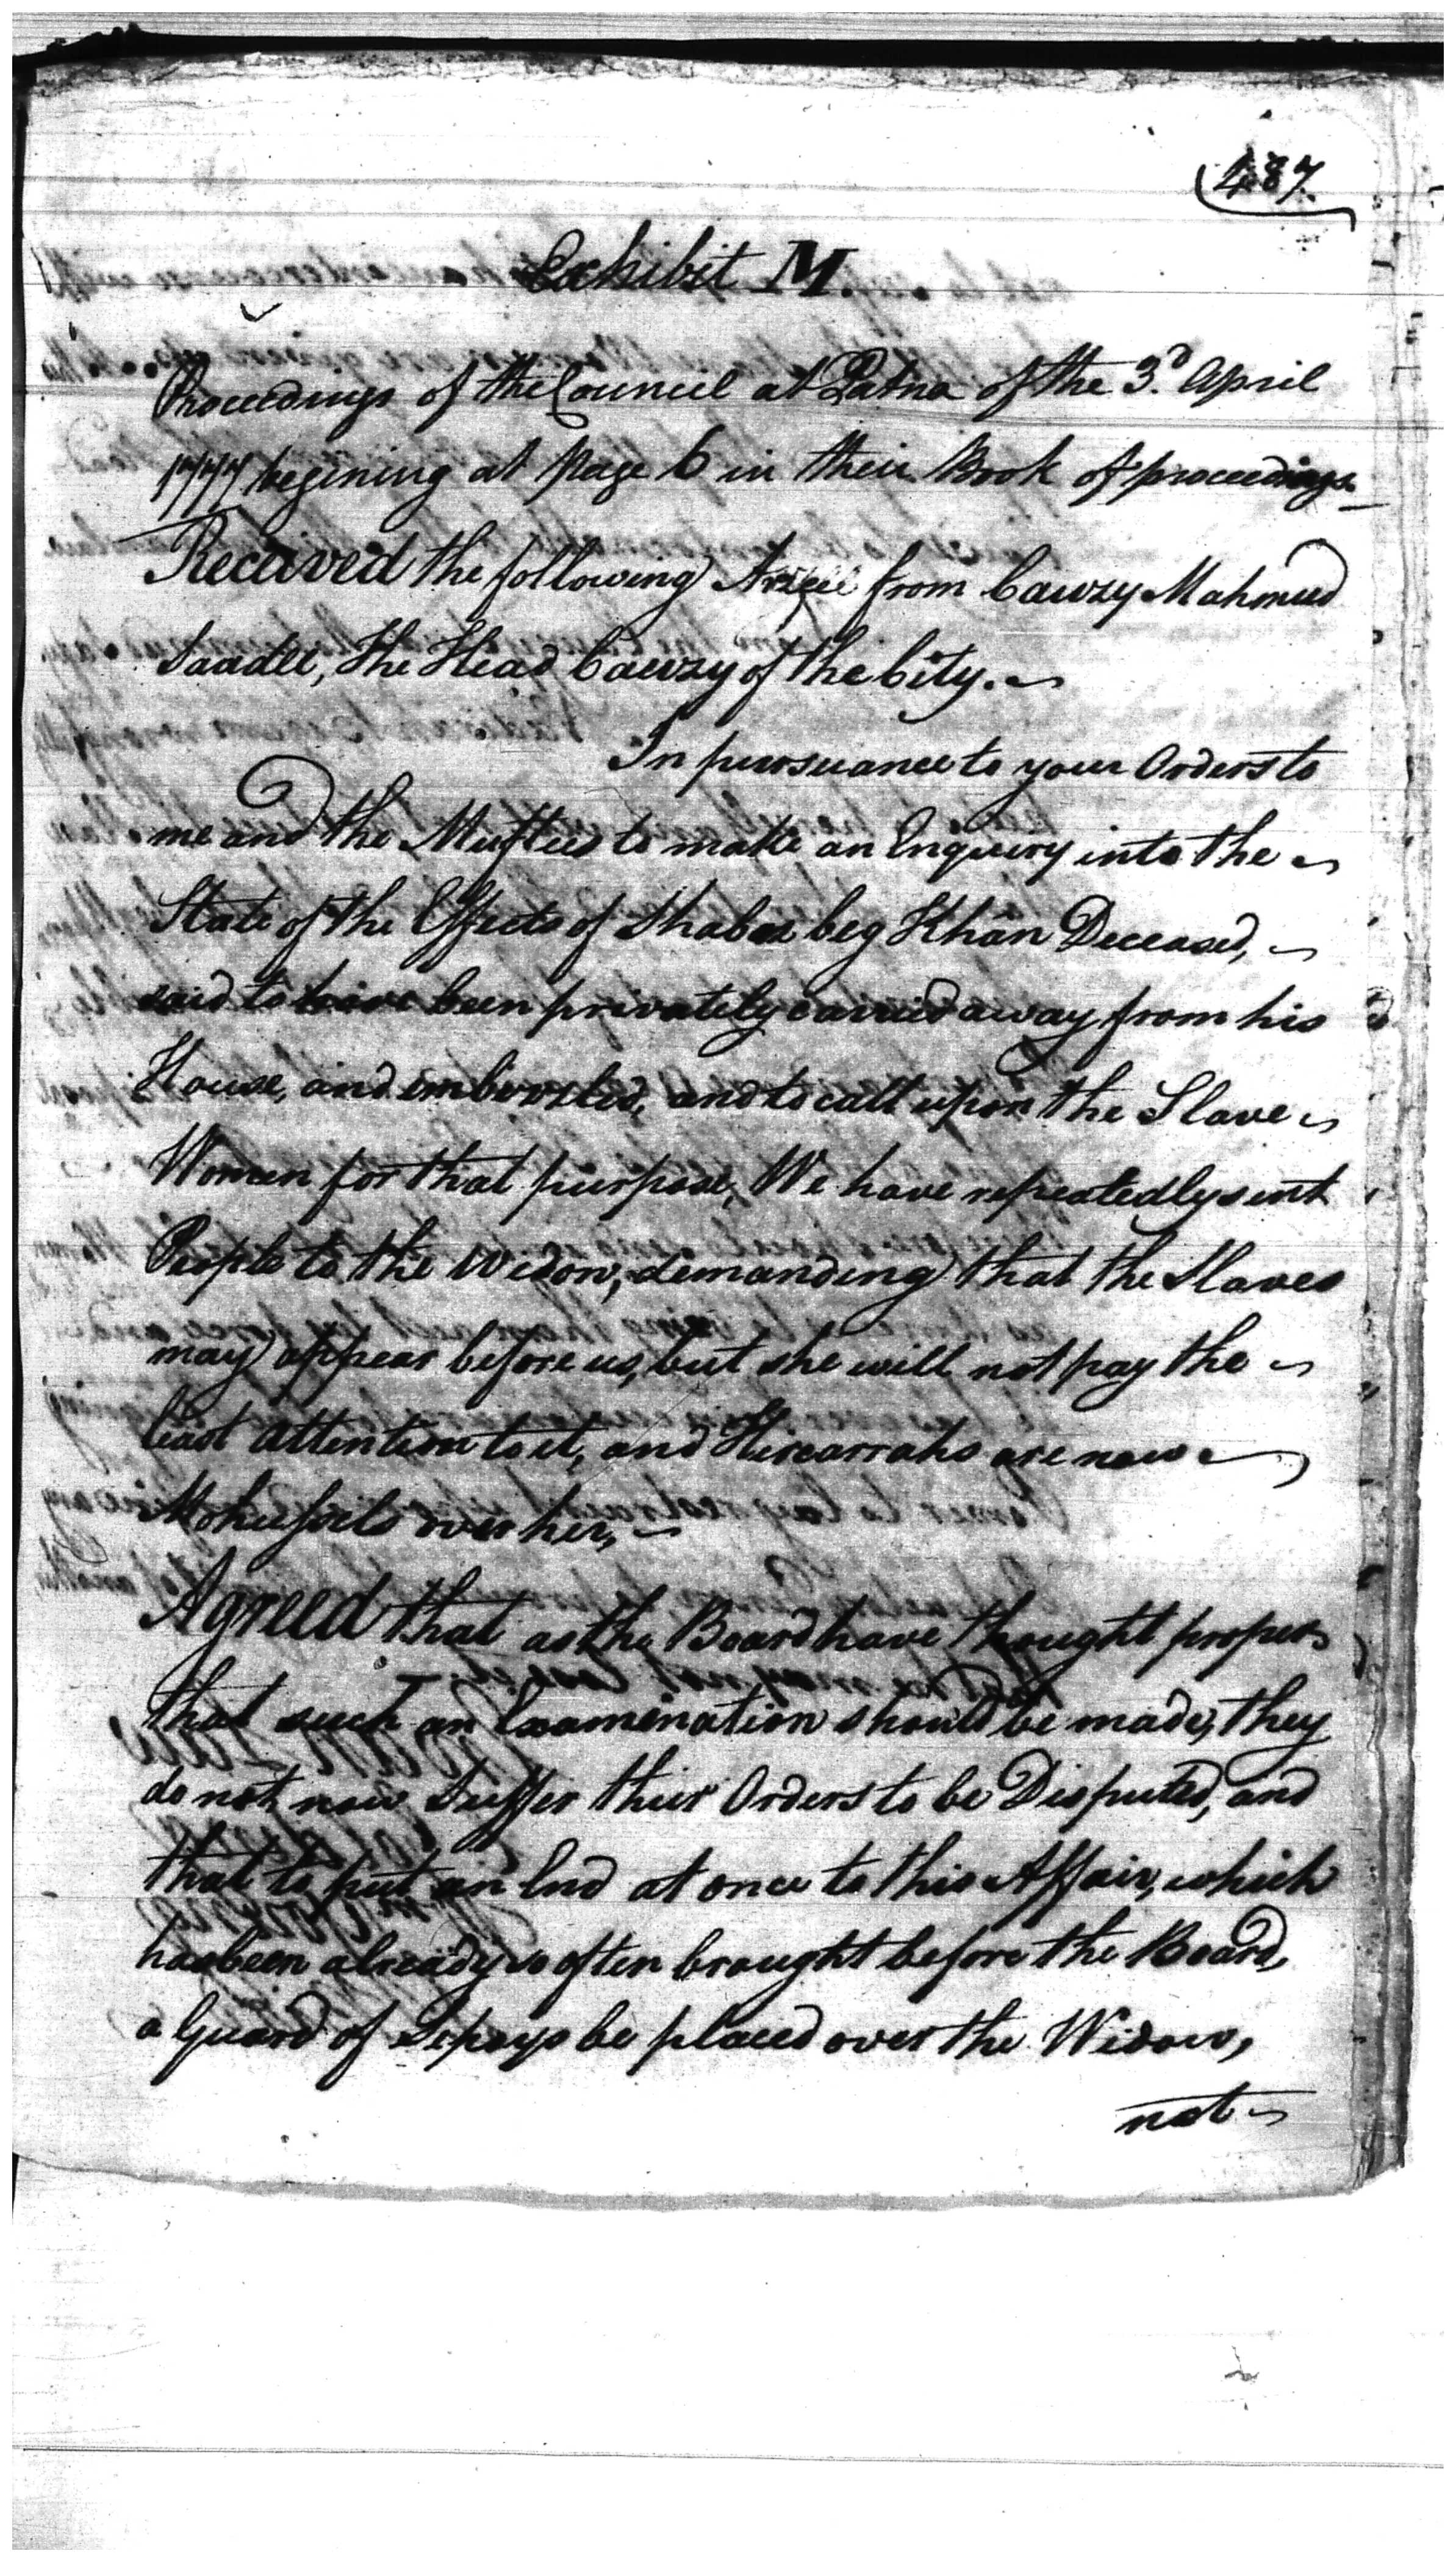 487.
Exhibit M.
Proceedings of the Council at Patna of the 3d. April
1777 begining at Page 6 in their Book of proceedings.
Received the following Arzee from Cawzy Mahmud
Saadee, The Head Cawzy of the City.
In pursuance to your Orders to
me and the Muftees to make an Enquiry into the
State of the Effects of Shabaz beg Khân Deceased,
said to have been privately carried away from his
House, and embezzled, and to call upon the Slave
Women for that purpose, We have repeatedly sent
People to the Widow, demanding that the Slaves
may appear before us, but she will not pay the
least Attention to it, and Hircarrahs are now
Mohussils over her,
Agreed that as the Board have thought proper
that such an Examination should be made, they
do not now Suffer their Orders to be Disputed, and
that to put an End at once to this Affair, which
has been already so often brought before the Board,
a Guard of Sepoys be placed over the Widow,
not